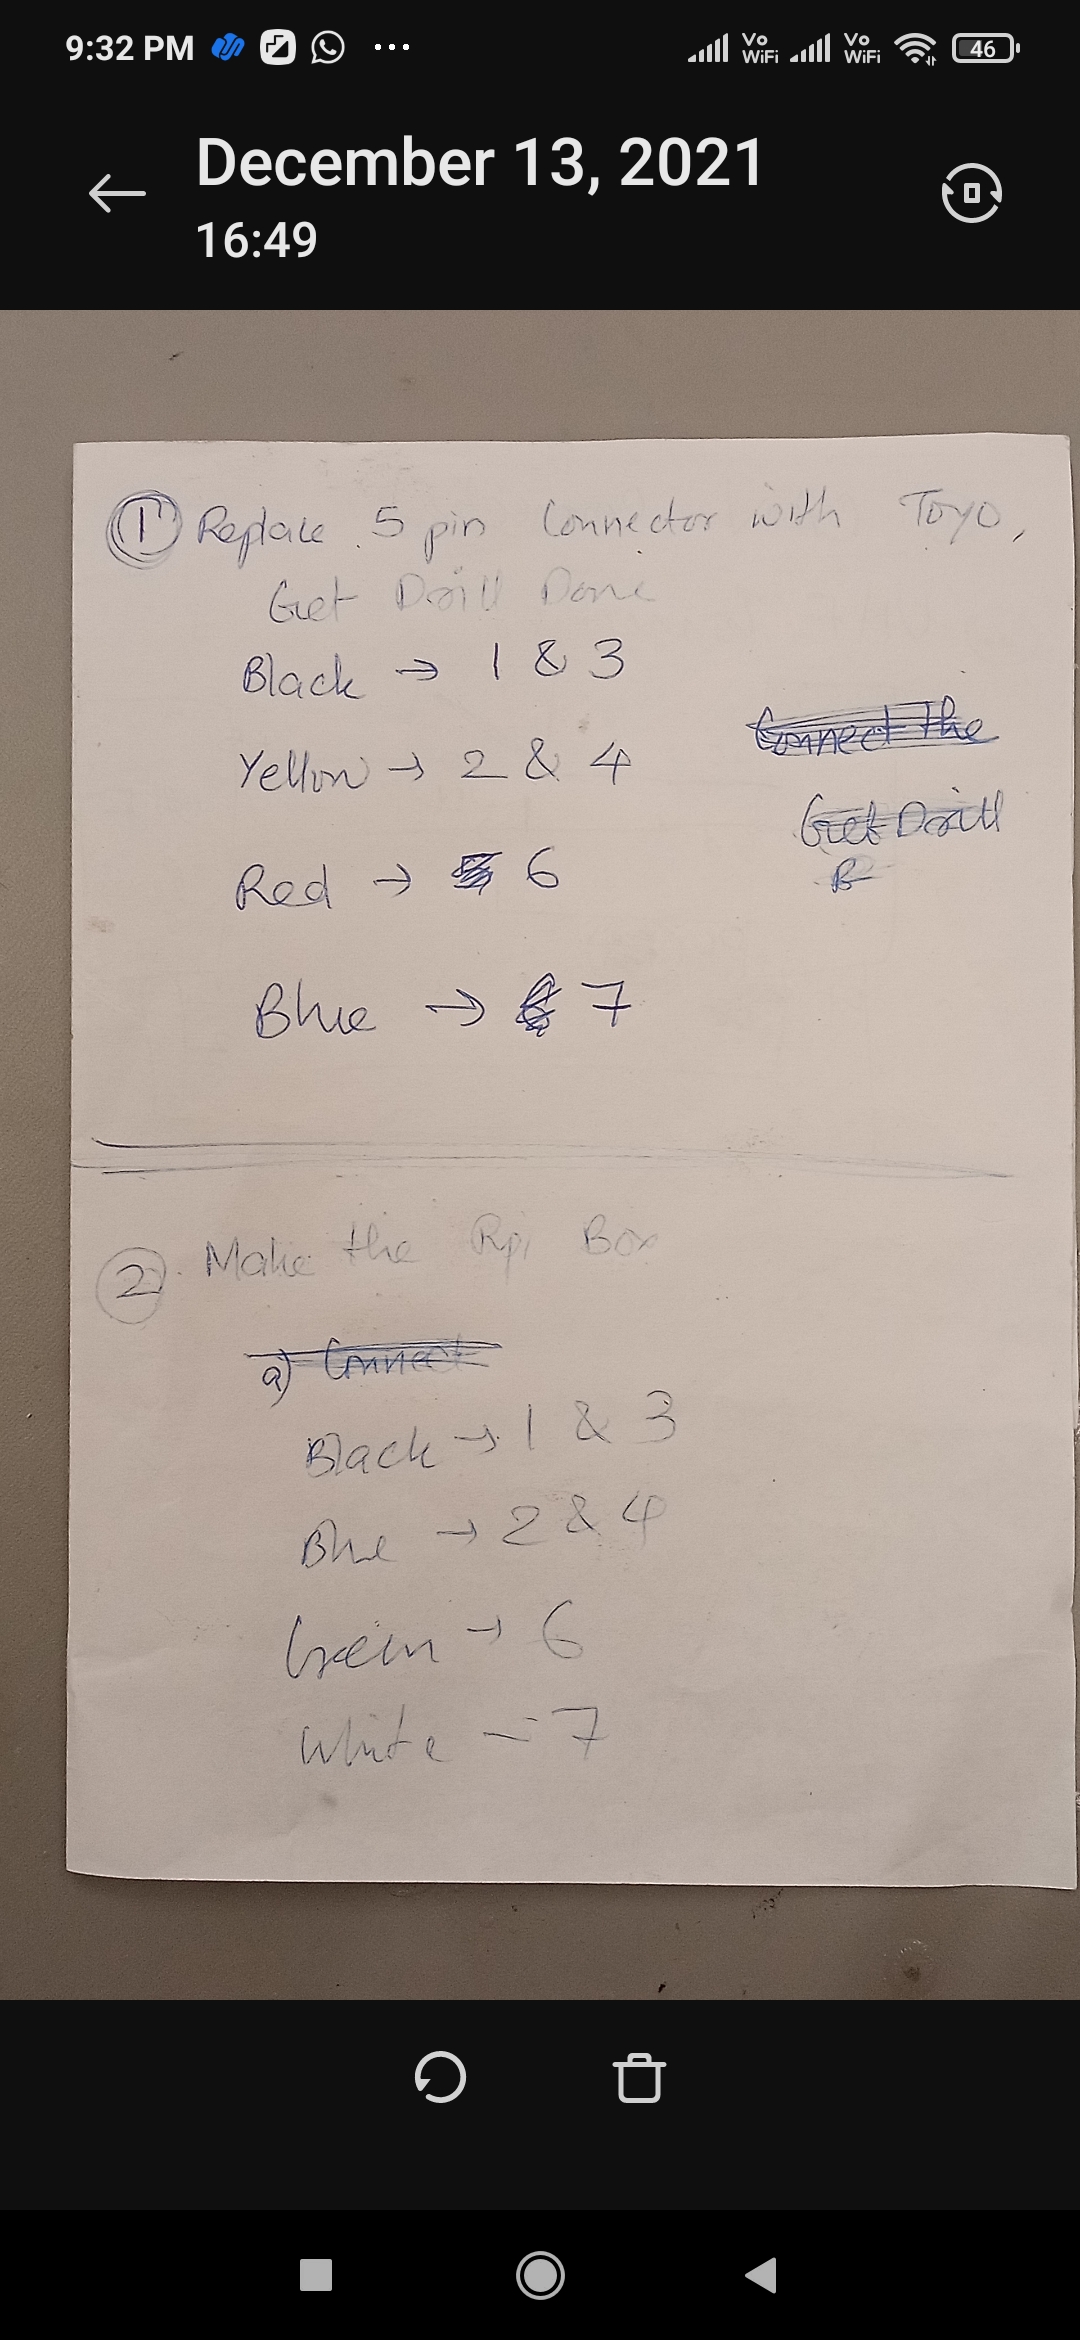 9:32 PM
Vo WiFi
Vo WiFi
46
December 13, 2021
16:49
① Replace 5 pin Connector with Toyo,
Get Drill Done
Black → 1 & 3
Connect the
Yellow → 2 & 4
Get Drill
B
Red → 5 6
Blue → 6 7
② Make the Rpi Box
a) Connect
Black → 1 & 3
Blue → 2 & 4
Green → 6
White - 7